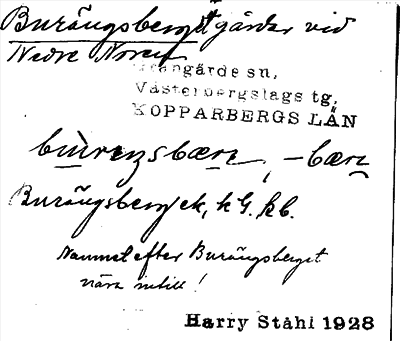 Burängsberget gårdar vid
Nedre Noren
Grangärde sn,
Västerbergslags tg,
KOPPARBERGS LÄN
bùrenzsbærr, -bærr
Burängsberg ek, kG. kb.
Namnet efter Burängsberget
nära intill!
Harry Ståhl 1928